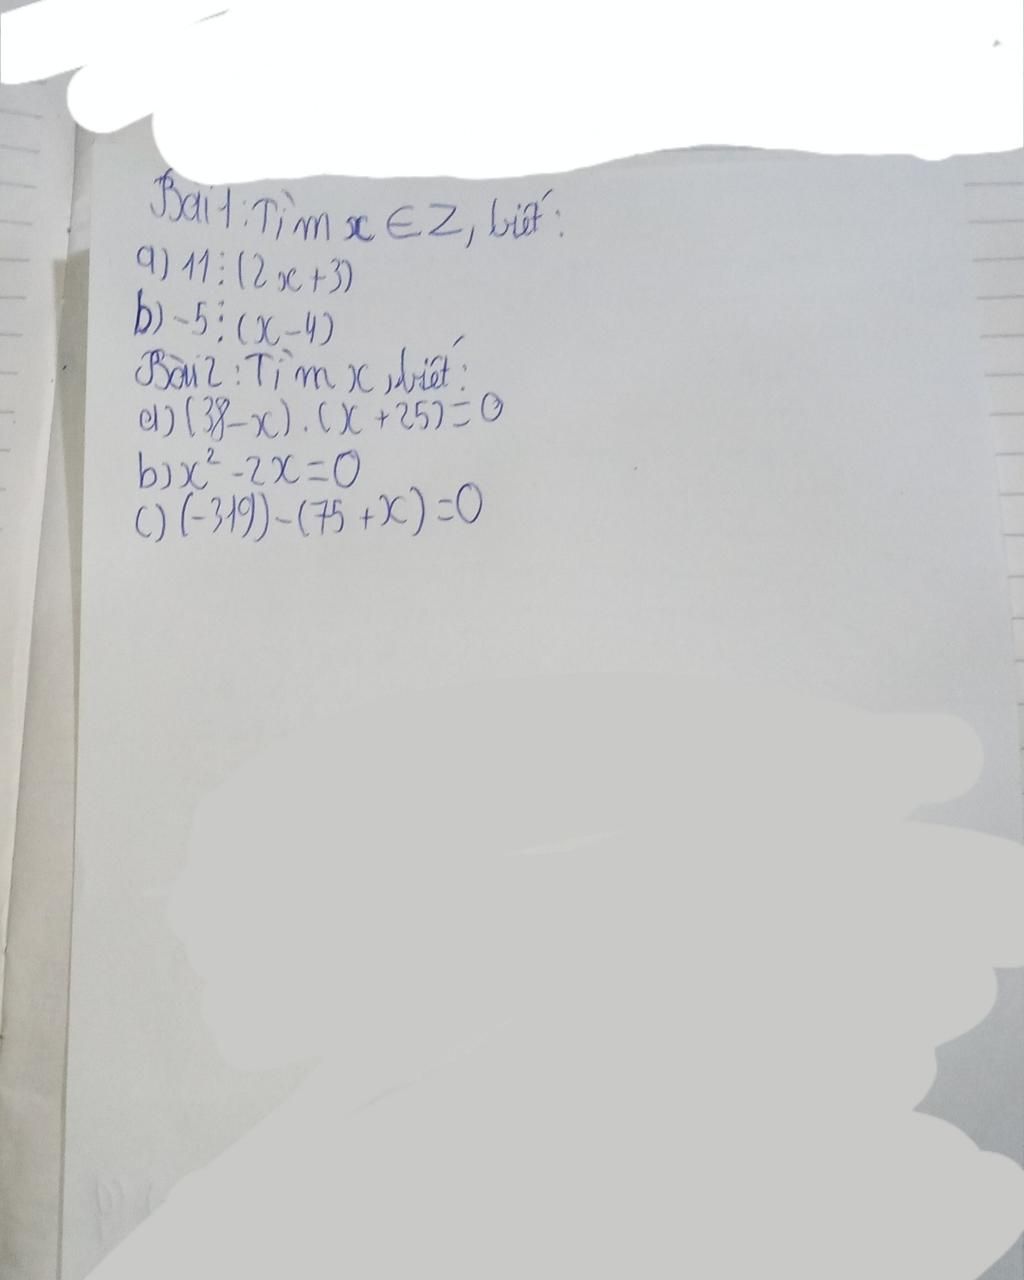 Bài 1: Tìm x ∈ Z, biết:
a) 11 ⋮ (2x+3)
b) -5 ⋮ (x-4)
Bài 2: Tìm x, biết:
a) (38-x).(x+25)=0
b) x² -2x=0
c) (-319)-(75+x)=0